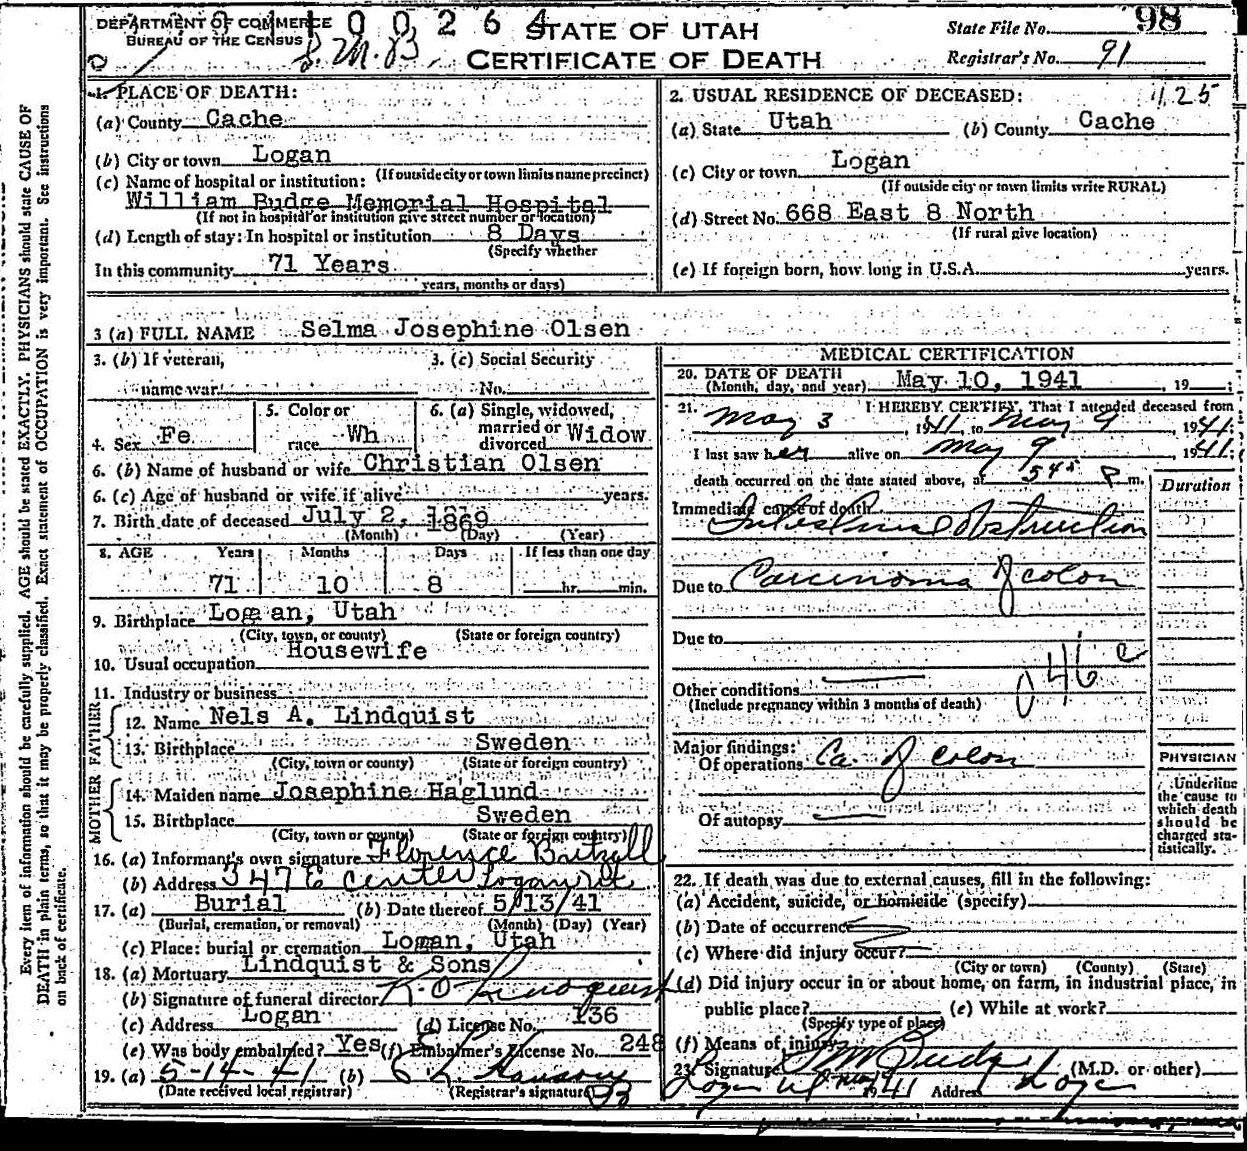 DEPARTMENT OF COMMERCE
BUREAU OF THE CENSUS
0 0 2 6 4
STATE OF UTAH
CERTIFICATE OF DEATH
State File No. 98
Registrar's No. 91
1. PLACE OF DEATH:
(a) County Cache
(b) City or town Logan
(If outside city or town limits name precinct)
(c) Name of hospital or institution:
William Budge Memorial Hospital
(If not in hospital or institution give street number or location)
(d) Length of stay: In hospital or institution 8 Days
(Specify whether
In this community 71 Years
years, months or days)
2. USUAL RESIDENCE OF DECEASED: 125
(a) State Utah (b) County Cache
(c) City or town Logan
(If outside city or town limits write RURAL)
(d) Street No. 668 East 8 North
(If rural give location)
(e) If foreign born, how long in U.S.A. years.
3 (a) FULL NAME Selma Josephine Olsen
3. (b) If veteran, 3. (c) Social Security
name war No.
4. Sex Fe 5. Color or race Wh 6. (a) Single, widowed, married or divorced Widow
6. (b) Name of husband or wife Christian Olsen
6. (c) Age of husband or wife if alive years.
7. Birth date of deceased July 2, 1869
(Month) (Day) (Year)
8. AGE Years Months Days If less than one day
71 10 8 hr. min.
9. Birthplace Logan, Utah
(City, town, or county) (State or foreign country)
10. Usual occupation Housewife
11. Industry or business
FATHER
12. Name Nels A. Lindquist
13. Birthplace Sweden
(City, town or county) (State or foreign country)
MOTHER
14. Maiden name Josephine Haglund
15. Birthplace Sweden
(City, town or county) (State or foreign country)
16. (a) Informant's own signature Florence
(b) Address 347 E Center Logan Ut
17. (a) Burial (b) Date thereof 5/13/41
(Burial, cremation, or removal) (Month) (Day) (Year)
(c) Place: burial or cremation Logan, Utah
18. (a) Mortuary Lindquist & Sons
(b) Signature of funeral director Lindquist
(c) Address Logan (d) License No. 136
(e) Was body embalmed? Yes (f) Embalmer's License No. 248
19. (a) 5-14-41 (b)
(Date received local registrar) (Registrar's signature)
MEDICAL CERTIFICATION
20. DATE OF DEATH
(Month, day, and year) May 10, 1941, 19
21. I HEREBY CERTIFY, That I attended deceased from
May 3, 1941, to May 9, 1941;
I last saw her alive on May 9, 1941;
death occurred on the date stated above, at 5 45 P m.
Duration
Immediate cause of death
Intestinal Obstruction
Due to Carcinoma of colon
Due to
046 e
Other conditions
(Include pregnancy within 3 months of death)
Major findings:
Of operations Ca. of colon
Of autopsy
PHYSICIAN
Underline the cause to which death should be charged statistically.
22. If death was due to external causes, fill in the following:
(a) Accident, suicide, or homicide (specify)
(b) Date of occurrence
(c) Where did injury occur?
(City or town) (County) (State)
(d) Did injury occur in or about home, on farm, in industrial place, in
public place? (e) While at work?
(Specify type of place)
(f) Means of injury
23. Signature Budge (M.D. or other)
Logan Ut 1941 Address Logan
Every item of information should be carefully supplied. AGE should be stated EXACTLY. PHYSICIANS should state CAUSE OF
DEATH in plain terms, so that it may be properly classified. Exact statement of OCCUPATION is very important. See instructions
on back of certificate.